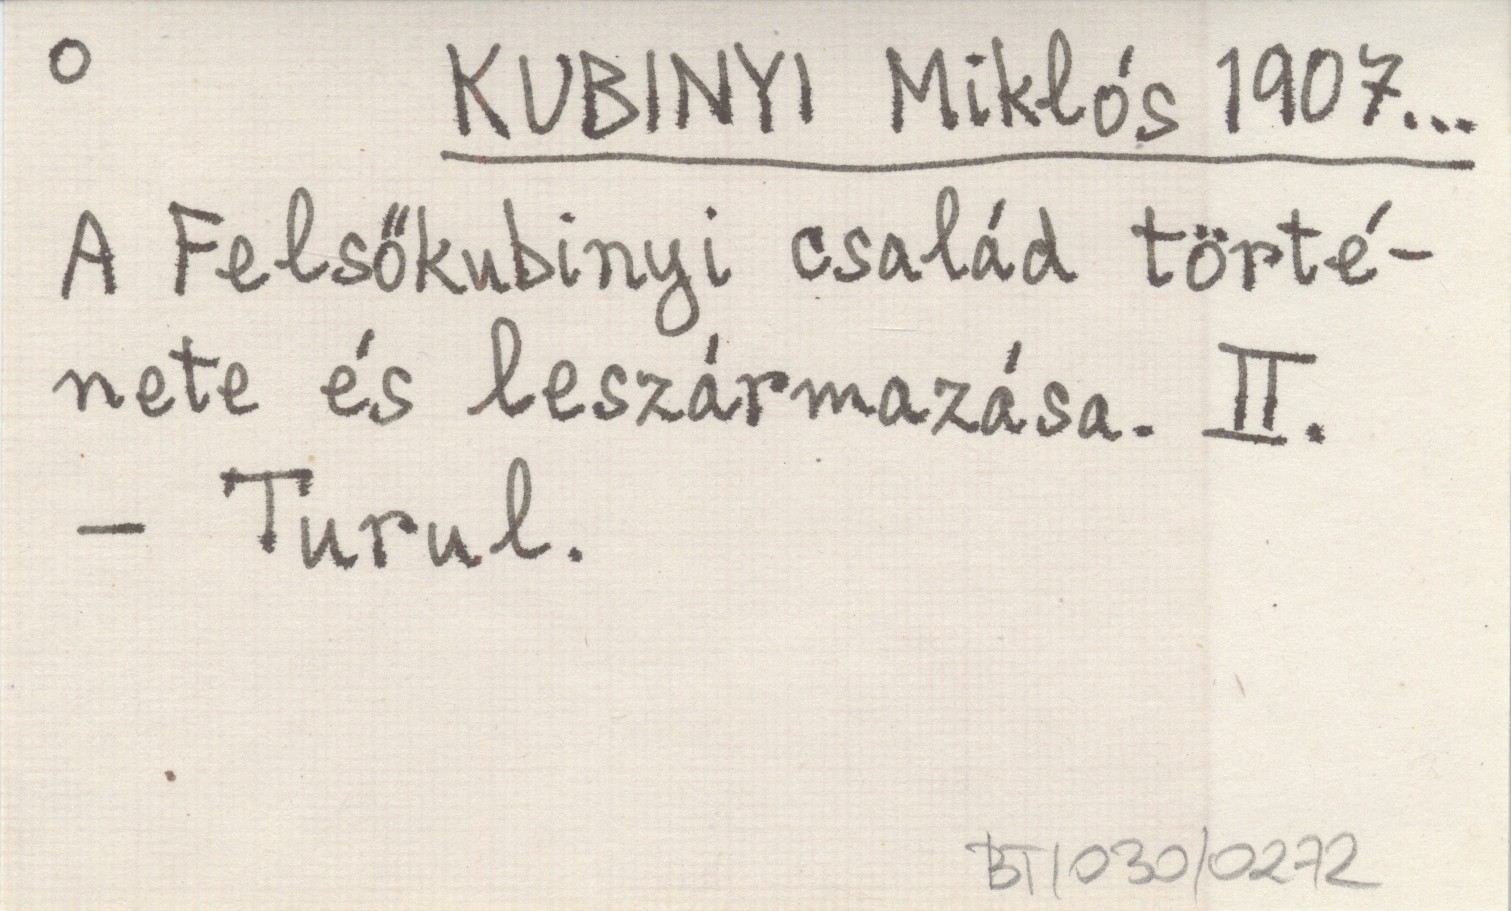 o KUBINYI Miklós 1907...
A Felsőkubinyi család törté-
nete és leszármazása. II.
- Turul.
BT/030/0272